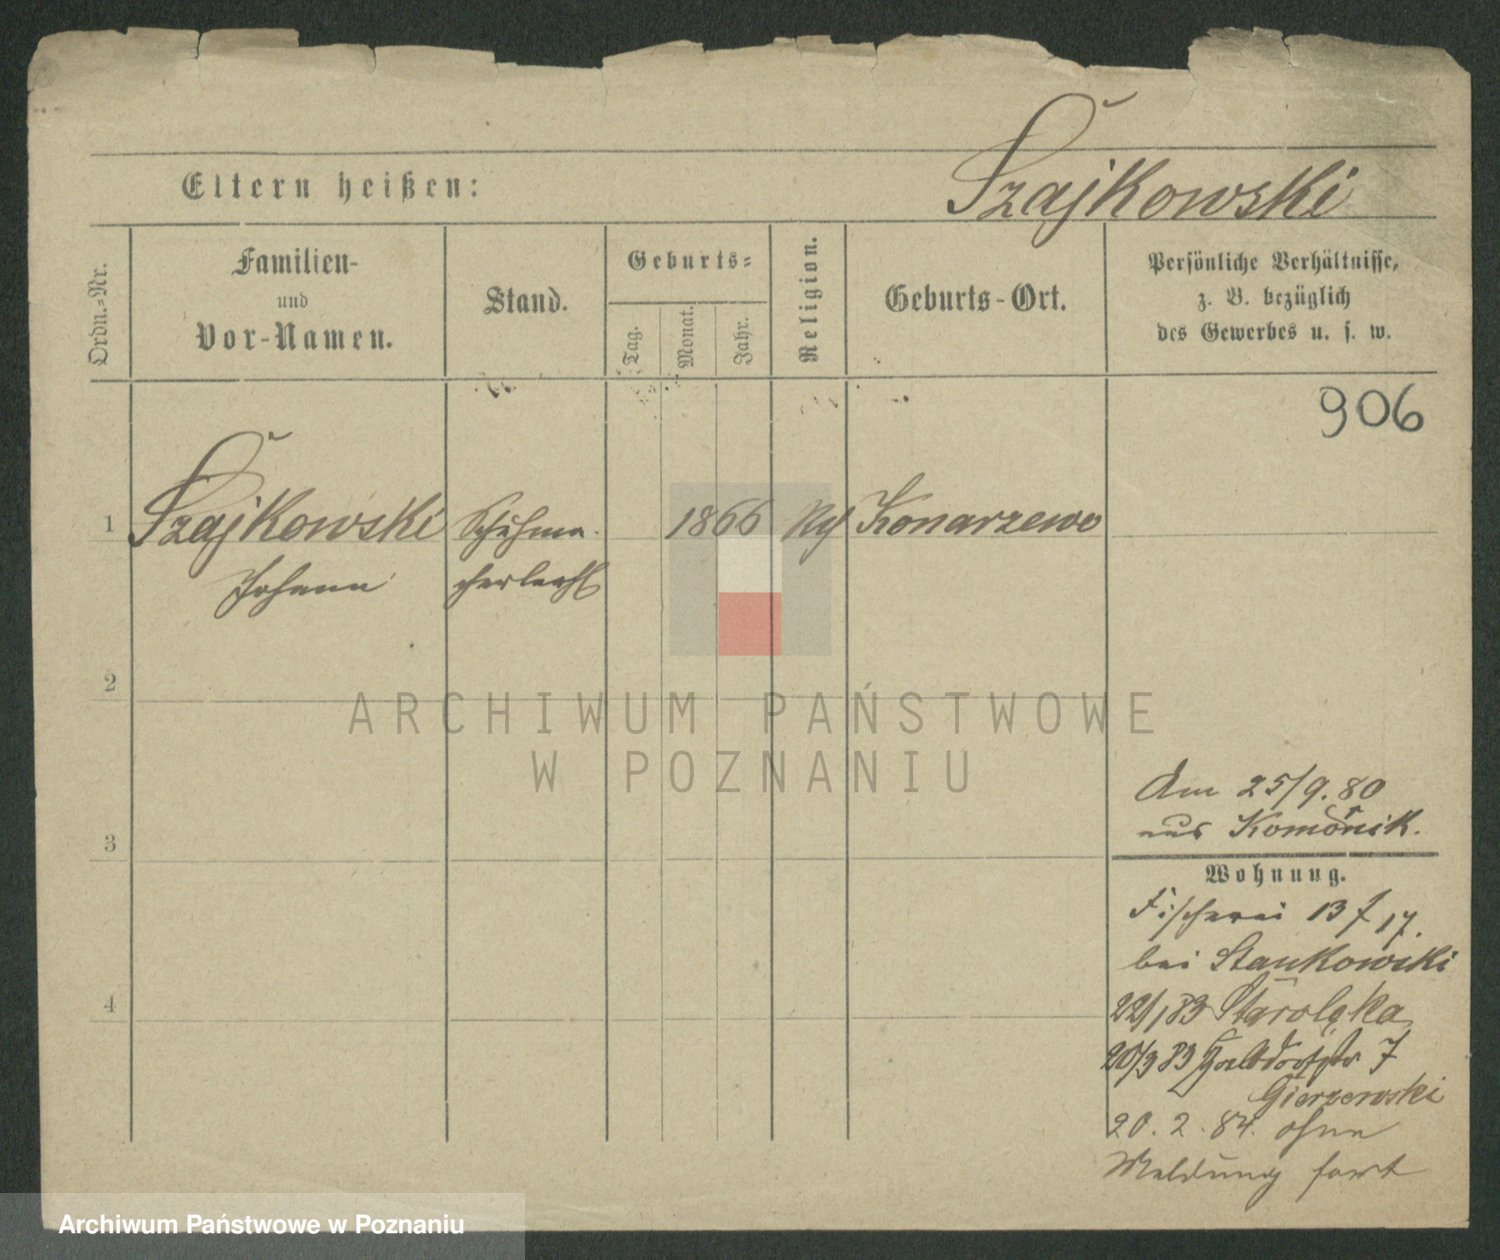 Szajkowski
Eltern heißen:
Ordn.-Nr.
Familien-
und
Vor-Namen.
Stand.
Geburts-
Tag.
Monat.
Jahr.
Religion.
Geburts-Ort.
Persönliche Verhältnisse,
z. B. bezüglich
des Gewerbes u. s. w.
906
1 Szajkowski Schuhma- 1866 Konarzewo
Johann cherlehrl
2
3
4
Am 25/9. 80
aus Komornik.
Wohnung.
Fischerei 13 17.
bei Stankowski
22/1 83 Starolęka
20/3 83 Halbdorfstr 7
Gierzewski
20. 2. 84. ohne
Meldung fort
ARCHIWUM PAŃSTWOWE
W POZNANIU
Archiwum Państwowe w Poznaniu